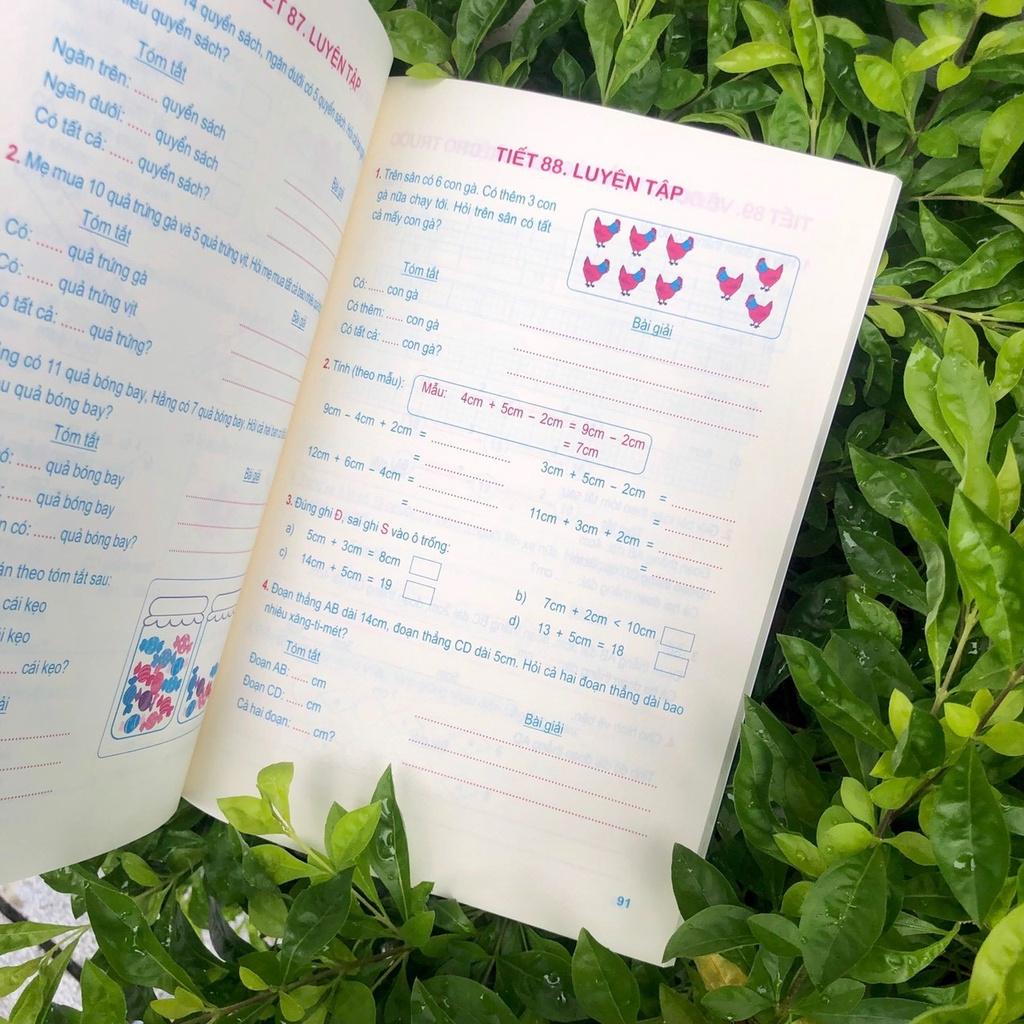 TIẾT 87. LUYỆN TẬP
14 quyển sách, ngăn dưới có 5 quyển sách.
nhiêu quyển sách?
Tóm tắt
Ngăn trên: ...... quyển sách
Ngăn dưới: ...... quyển sách
Có tất cả: ...... quyển sách?
Bài giải
2. Mẹ mua 10 quả trứng gà và 5 quả trứng vịt. Hỏi mẹ mua tất cả bao nhiêu
Tóm tắt
Có: ...... quả trứng gà
Có: ...... quả trứng vịt
tất cả: ...... quả trứng?
Bài giải
có 11 quả bóng bay, Hằng có 7 quả bóng bay. Hỏi cả hai bạn
quả bóng bay?
Tóm tắt
...... quả bóng bay
...... quả bóng bay
có: ...... quả bóng bay?
Bài giải
theo tóm tắt sau:
cái kẹo
kẹo
...... cái kẹo?
TIẾT 88. LUYỆN TẬP
1. Trên sân có 6 con gà. Có thêm 3 con
gà nữa chạy tới. Hỏi trên sân có tất
cả mấy con gà?
Tóm tắt
Có: ...... con gà
Có thêm: ...... con gà
Có tất cả: ...... con gà?
Bài giải
2. Tính (theo mẫu):
Mẫu: 4cm + 5cm – 2cm = 9cm – 2cm
= 7cm
9cm – 4cm + 2cm = ....................
= ....................
3cm + 5cm – 2cm = ....................
= ....................
12cm + 6cm – 4cm = ....................
= ....................
11cm + 3cm + 2cm = ....................
= ....................
3. Đúng ghi Đ, sai ghi S vào ô trống:
a) 5cm + 3cm = 8cm
b) 7cm + 2cm < 10cm
c) 14cm + 5cm = 19
d) 13 + 5cm = 18
4. Đoạn thẳng AB dài 14cm, đoạn thẳng CD dài 5cm. Hỏi cả hai đoạn thẳng dài bao
nhiêu xăng-ti-mét?
Tóm tắt
Đoạn AB: ...... cm
Đoạn CD: ...... cm
Cả hai đoạn: ...... cm?
Bài giải
91